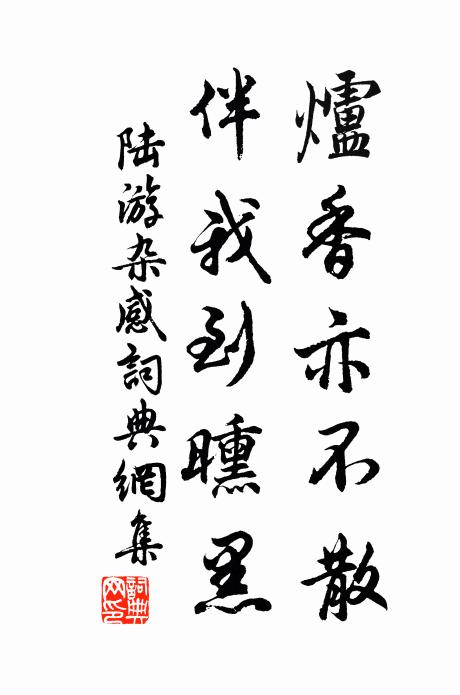 爐香亦不散
伴我到曛黑
陆游杂感詞典網集
詞典網印